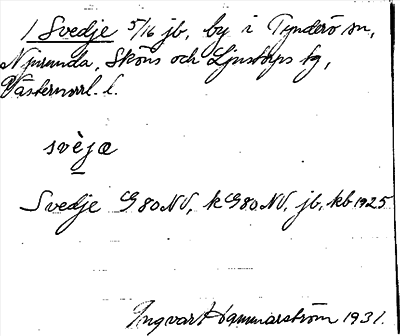 1 Svedje 5/16 jb, by i Tynderö sn,
Njurunda, Sköns och Ljustorps tg,
Västernorrl. l.
svèjæ
Svedje G80NV, k G80NV, jb, kb 1925
Ingvar Hammarström 1931.